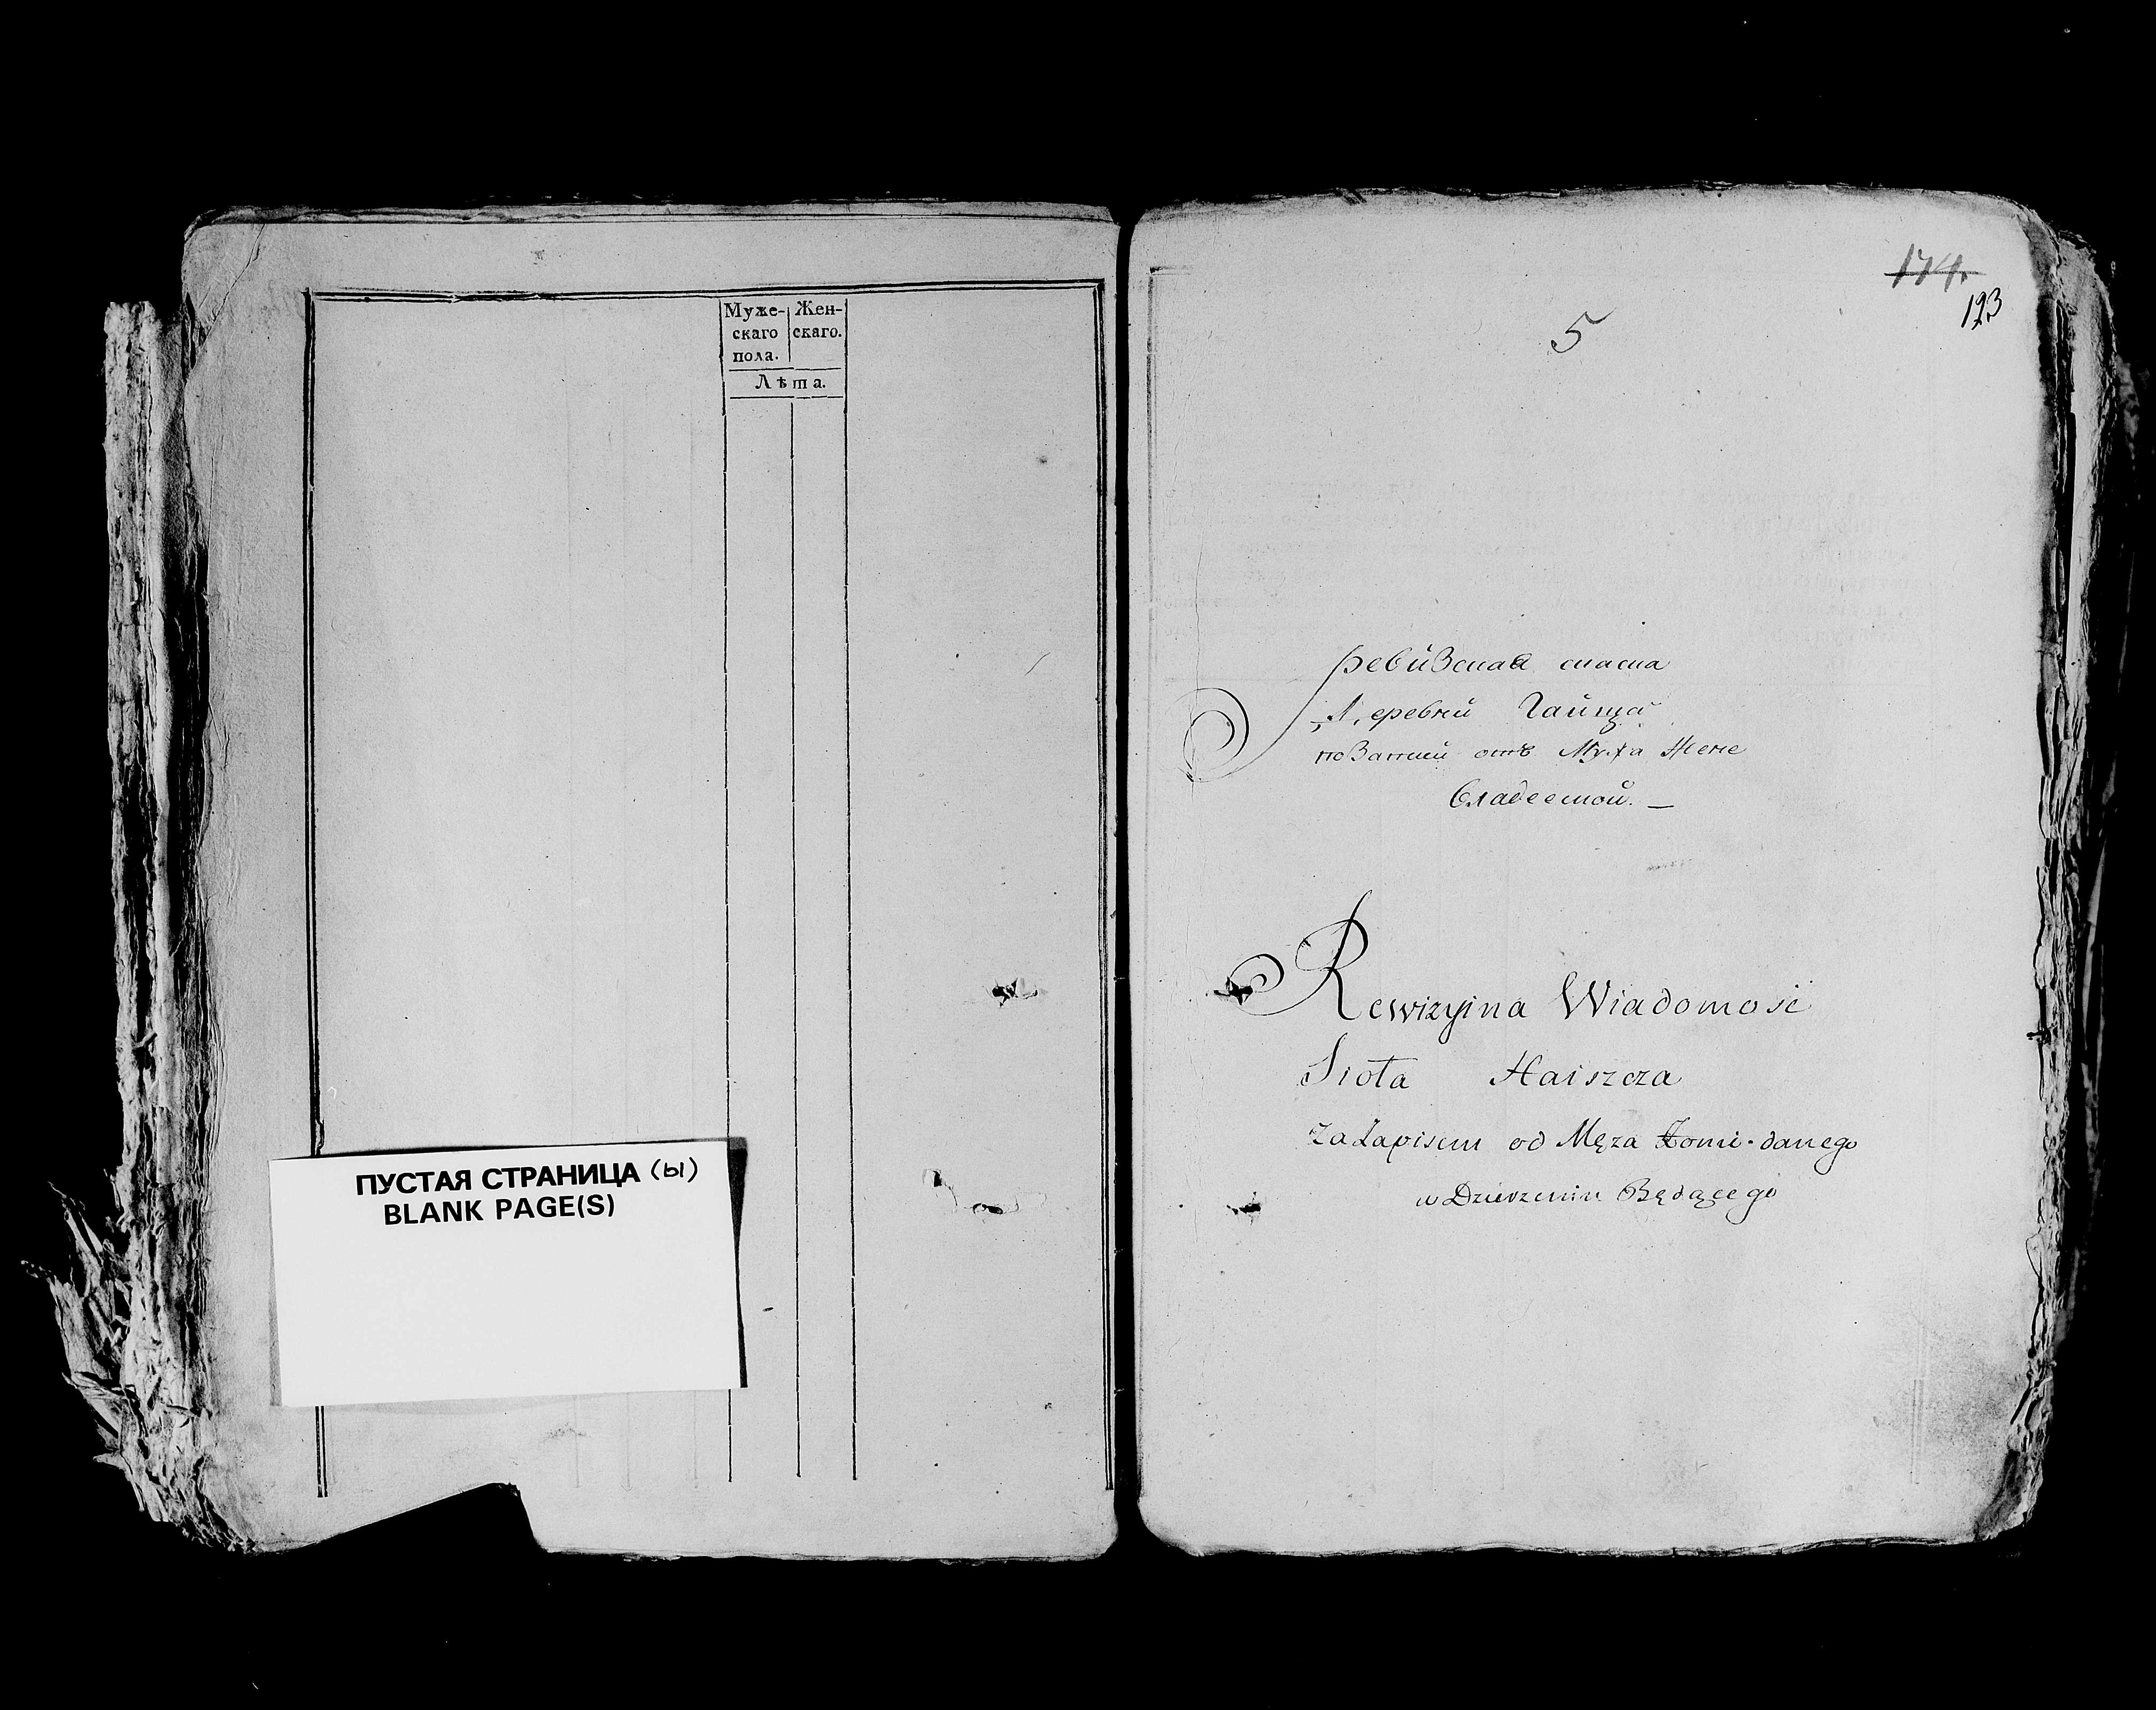 Муже- Жен-
скаго скаго.
пола.
Лѣта.
ПУСТАЯ СТРАНИЦА (ы)
BLANK PAGE(S)
174.
193
5
ревизская скаска
Деревни Гайща
по Записи отъ Мужа Жене
владеемой. —
Rewizyina Wiadomość
Sioła Haiszcza
Za Zapisem od Męża Żonie danego
w Dzierzeniu Będącego